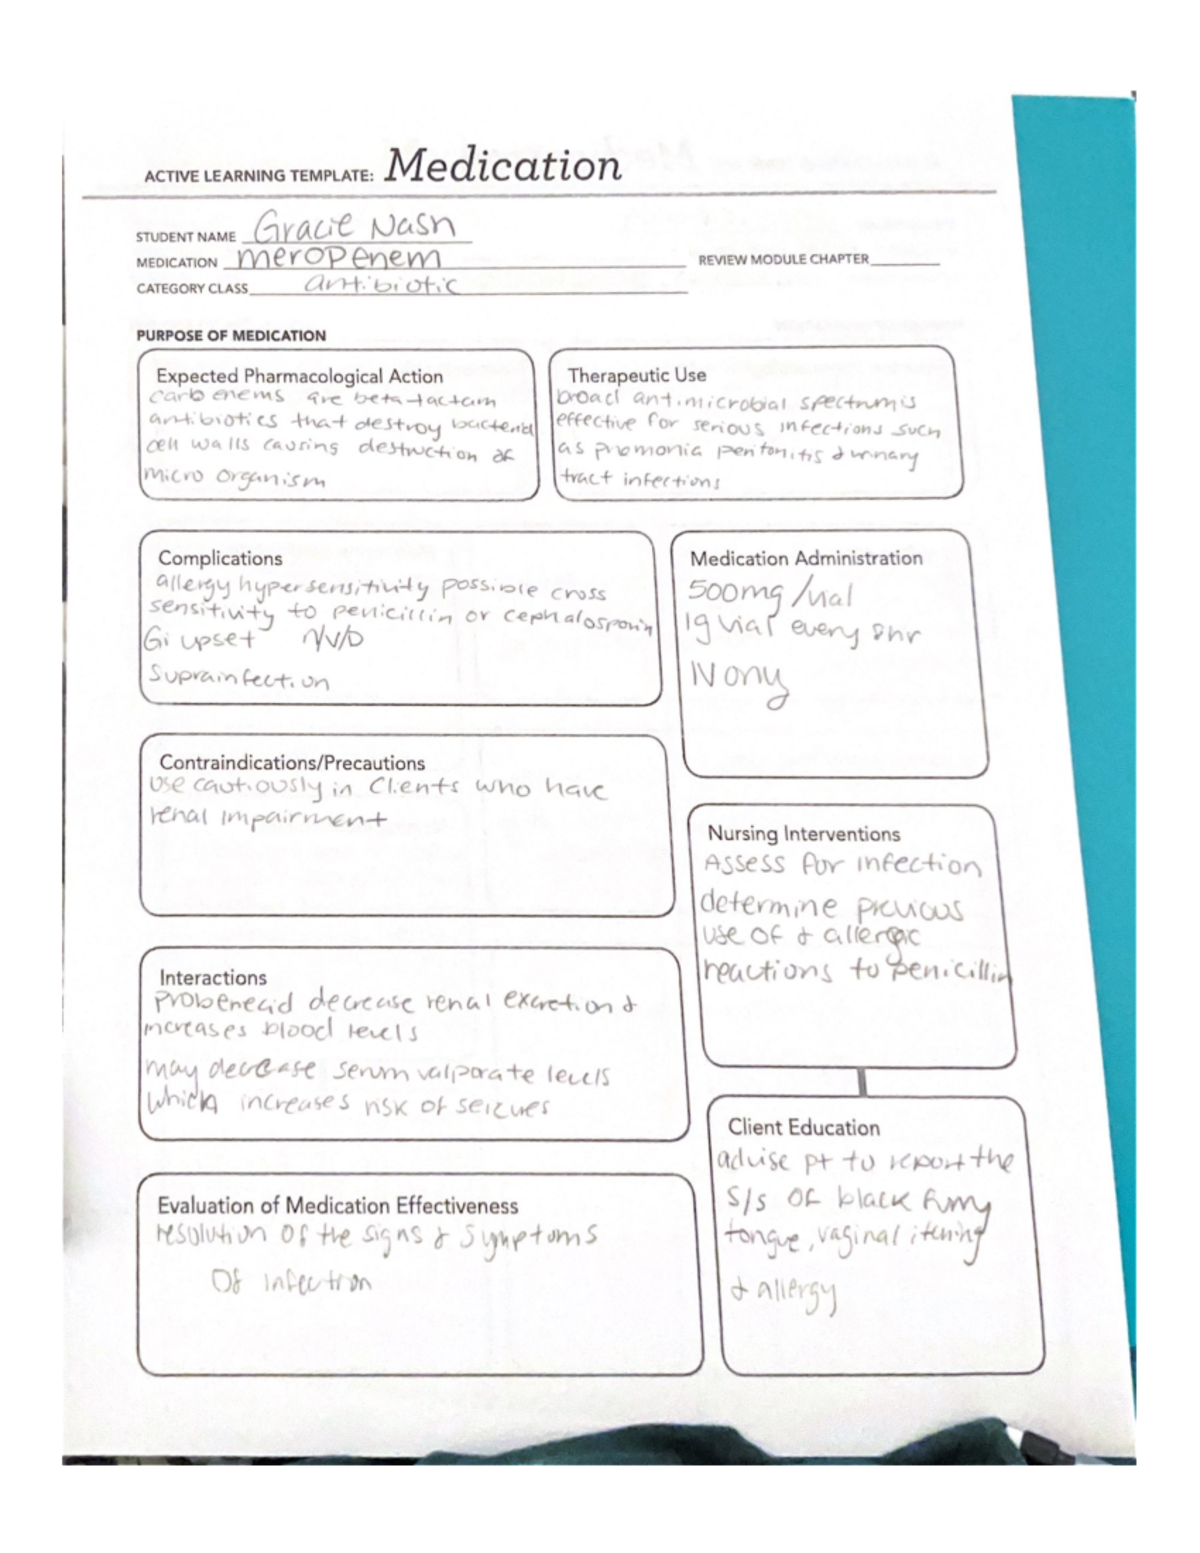 ACTIVE LEARNING TEMPLATE: Medication
STUDENT NAME Gracie Nash
MEDICATION meropenem REVIEW MODULE CHAPTER
CATEGORY CLASS antibiotic
PURPOSE OF MEDICATION
Expected Pharmacological Action
carbenems are beta-lactam
antibiotics that destroy bacterial
cell walls causing destruction of
micro organism
Therapeutic Use
broad antimicrobial spectrum is
effective for serious infections such
as pnomonia peritonitis & urinary
tract infections
Complications
allergy hypersensitivity possible cross
sensitivity to penicillin or cephalosporin
Gi upset N/V/D
Suprainfection
Medication Administration
500mg/vial
1g vial every 8hr
IV ony
Contraindications/Precautions
Use cautiously in Clients who have
renal impairment
Nursing Interventions
Assess for infection
determine previous
use of & allergic
reactions to penicillin
Interactions
probenecid decrease renal excretion &
increases blood levels
may decrease serum valporate levels
which increases risk of seizues
Client Education
advise pt to report the
S/S OF black furry
tongue, vaginal itching
& allergy
Evaluation of Medication Effectiveness
resolution of the signs & symptoms
Of infection